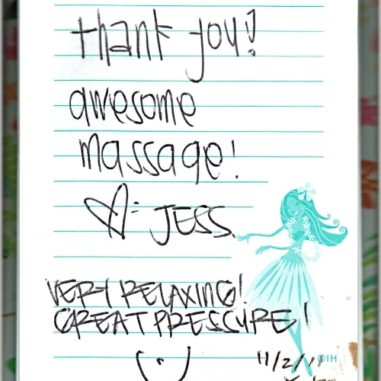 thank you!
awesome
massage!
♡- JESS.
VERY RELAXING!
GREAT PRESSURE!
11/2/11